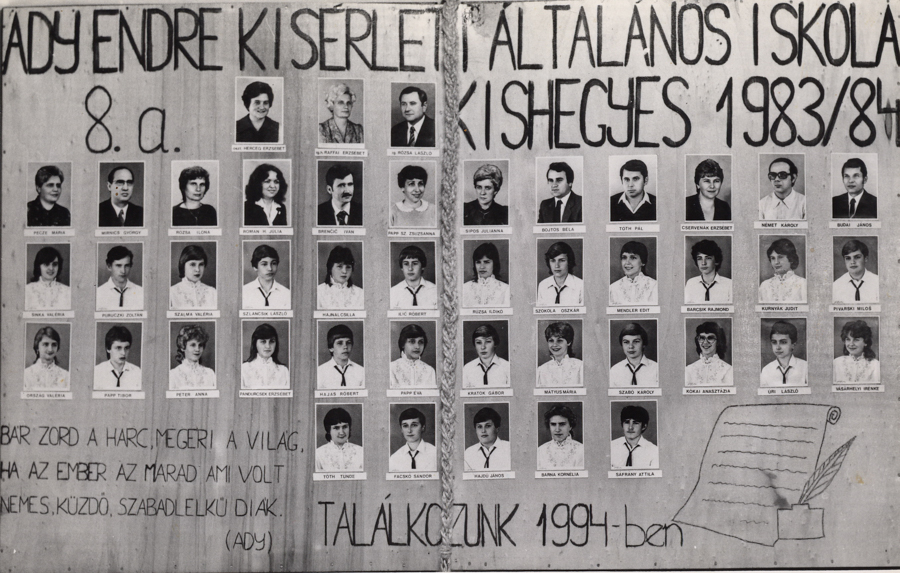 ADY ENDRE KISÉRLETI ÁLTALÁNOS ISKOLA
8. a.
KISHEGYES 1983/84
HERCEG ERZSÉBET
RAFFAI ERZSÉBET
RÓZSA LÁSZLÓ
PECZE MÁRIA
GYÖRGY
RÓZSA ILONA
JÚLIA
BRENČIĆ IVÁN
PAPP SZ. ZSUZSANNA
SIPOS JULIANNA
BOJTOS BÉLA
TÓTH PÁL
CSERVENÁK ERZSÉBET
NÉMET KÁROLY
BUDAI JÁNOS
SINKA VALÉRIA
PURUCZKI ZOLTÁN
SZALMA VALÉRIA
SZLANCSIK LÁSZLÓ
HAJNAL CSILLA
ILIĆ RÓBERT
RÓZSA ILDIKÓ
SZOKOLA OSZKÁR
MENDLER EDIT
BARCSIK RAJMOND
KURNYÁK JUDIT
PIVARSKI MILOŠ
VALÉRIA
PAPP TIBOR
PÉTER ANNA
ERZSÉBET
HAJJUS RÓBERT
PAPP ÉVA
ARATOK GÁBOR
MÁTYUS MÁRIA
SZABÓ KÁROLY
KÓKAI ANASZTÁZIA
URI LÁSZLÓ
VÁSÁRHELYI IRENKE
TÓTH TÜNDE
FACSKÓ SÁNDOR
HAJDÚ JÁNOS
BARNA KORNÉLIA
SAFRÁNY ATTILA
BÁR ZORD A HARC, MEGÉRI A VILÁG,
HA AZ EMBER AZ MARAD AMI VOLT
NEMES, KÜZDŐ, SZABADLELKŰ DIÁK.
(ADY)
TALÁLKOZUNK 1994-ben